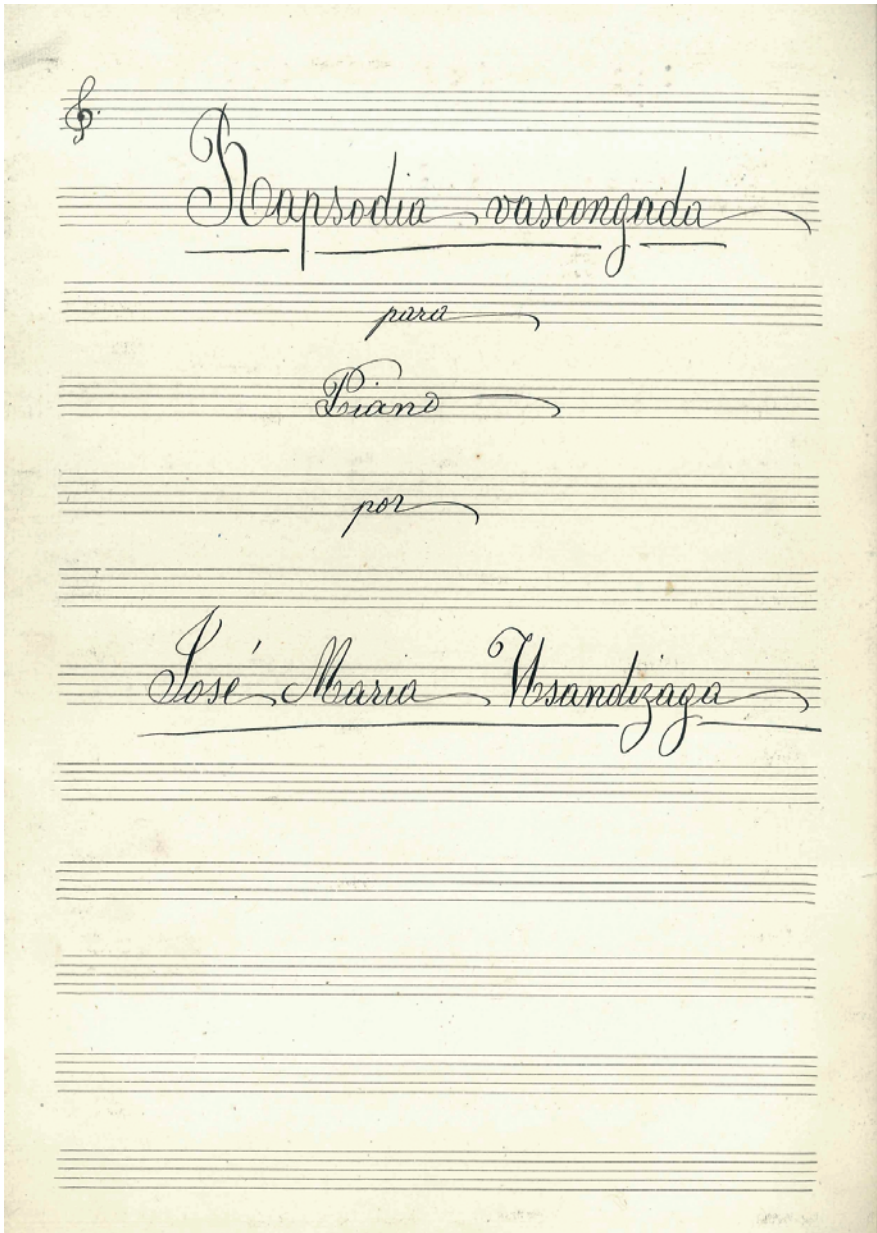 Rapsodia vascongada
para
Piano
por
José Maria Usandizaga